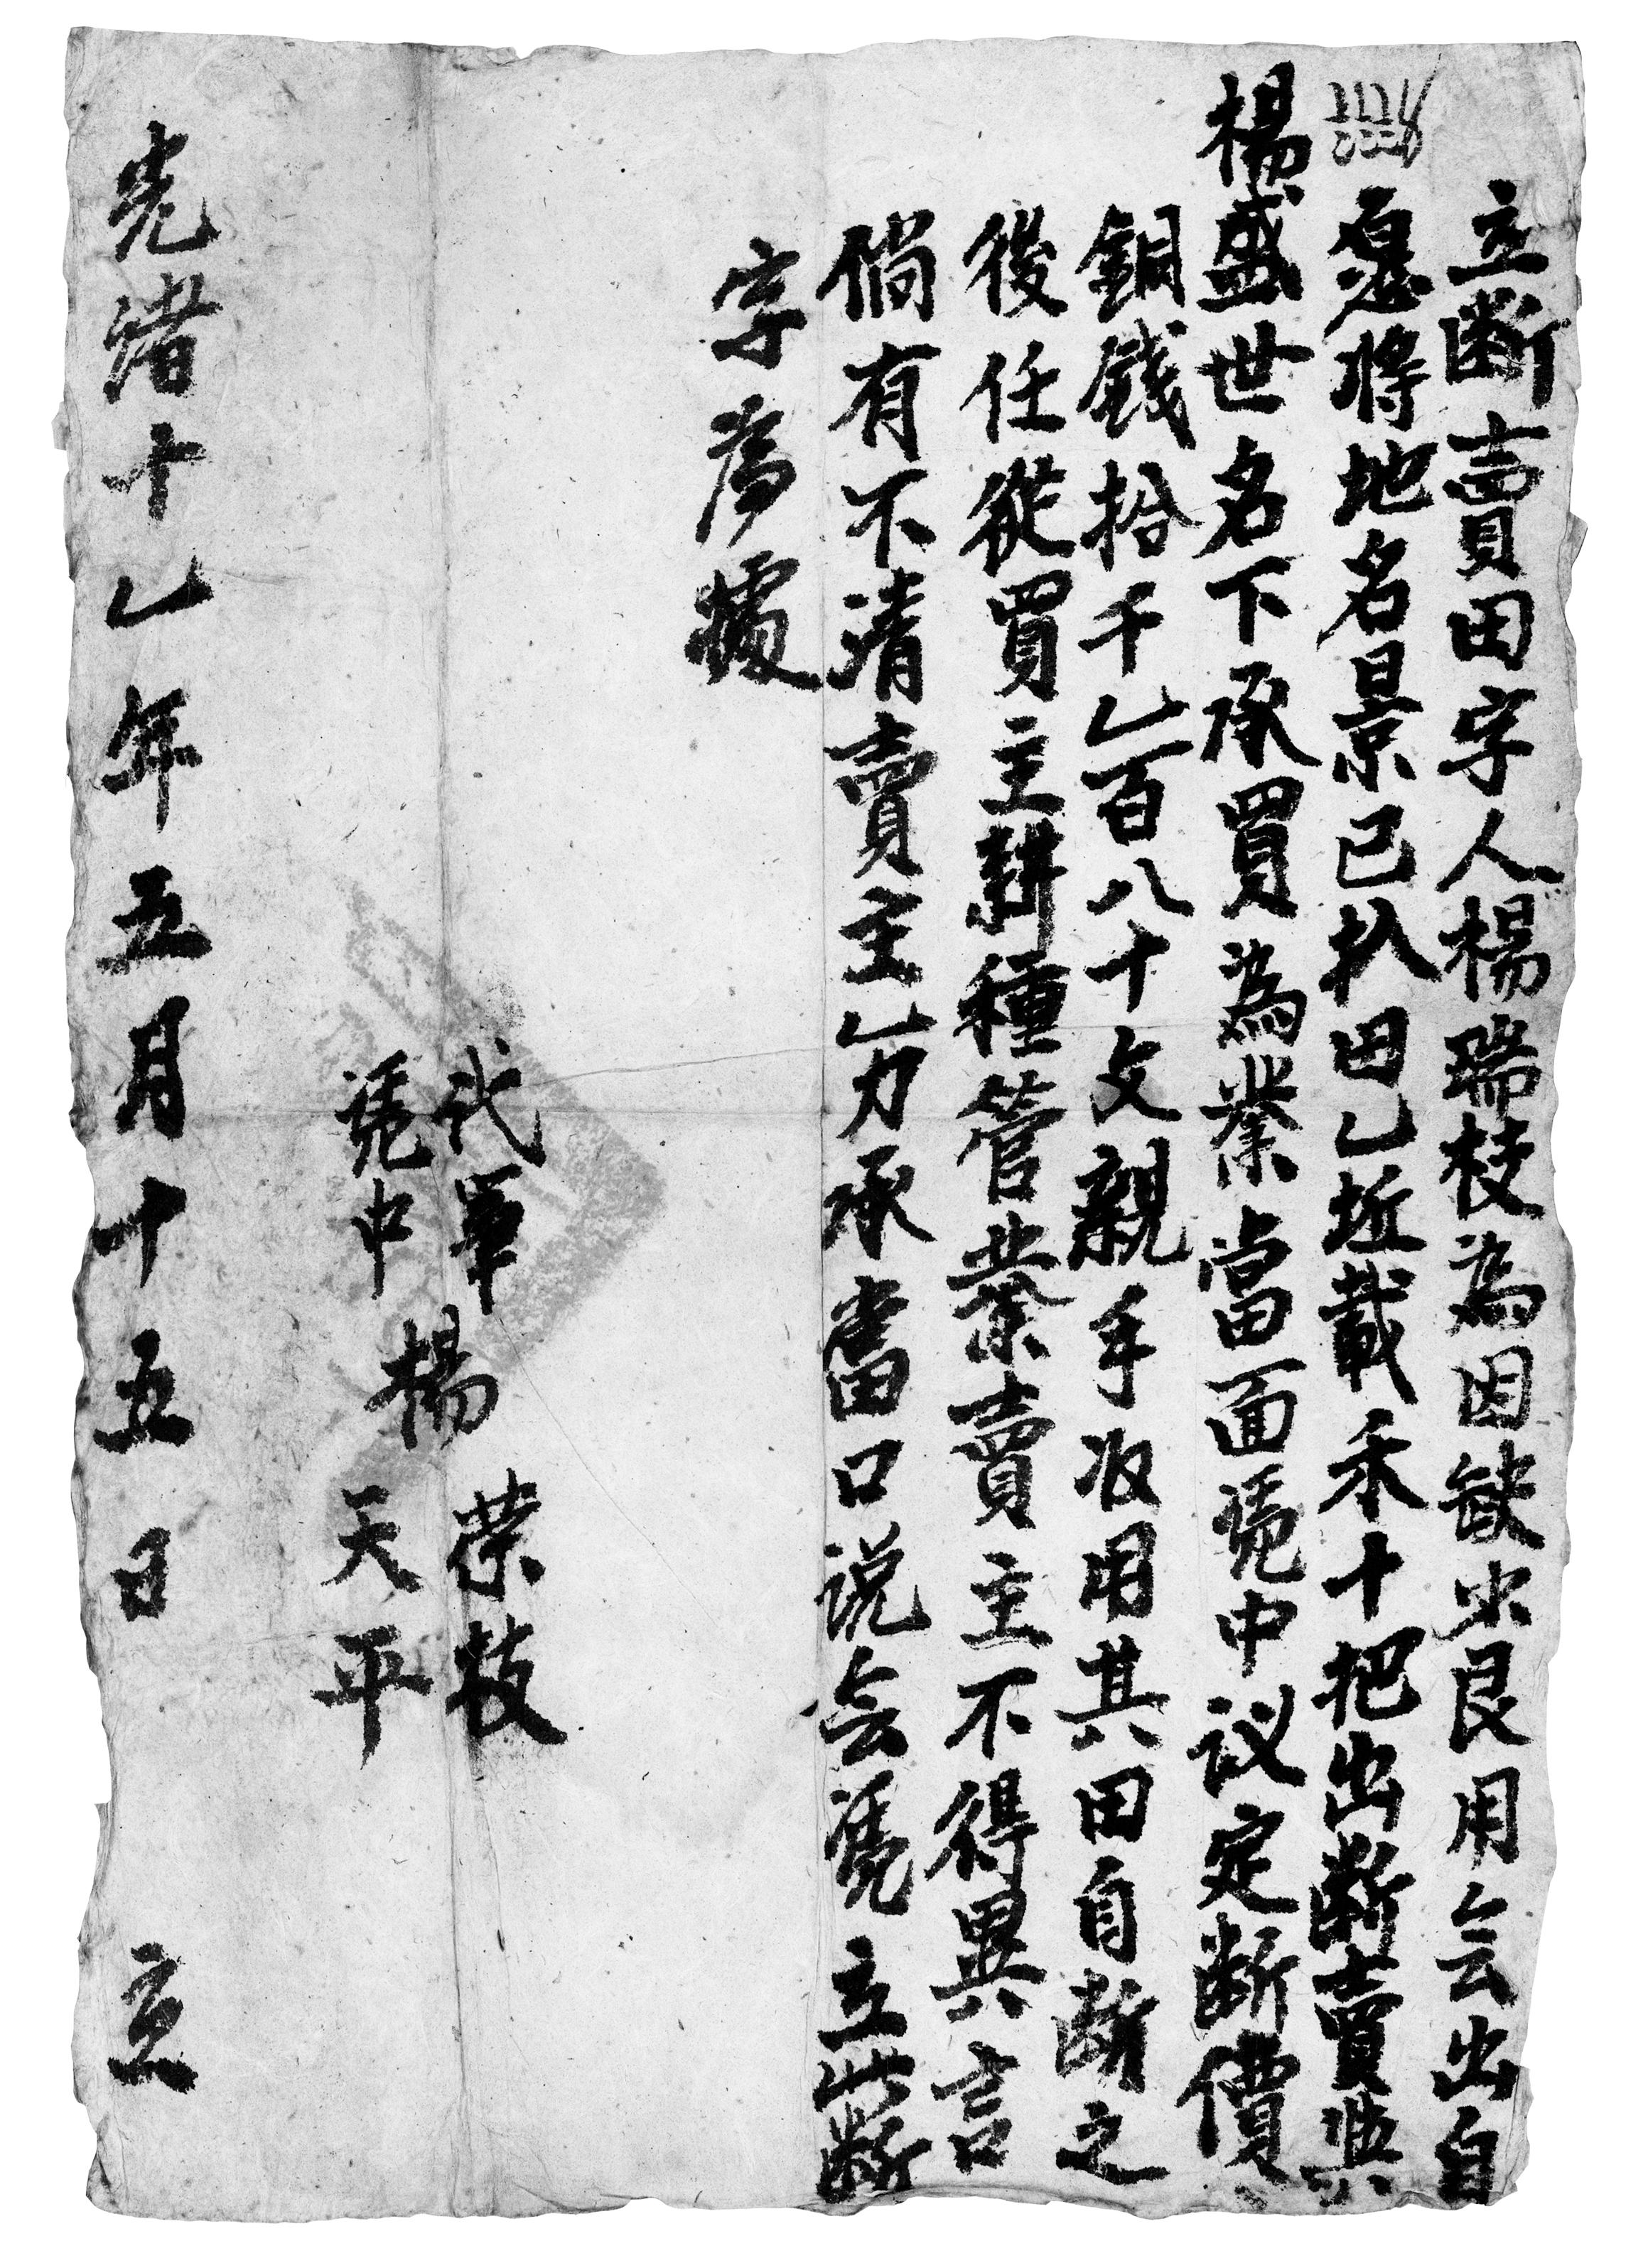 立断賣田字人楊瑞枝為因缺少艮用无出自
愿将地名景已扒田乙坵載禾十把出断賣與
楊盛世名下承買為業當面凭中议定断價
銅錢拾千乚百八十文親手收用其田自断之
後任從買主耕種管業賣主不得異言
倘有不清賣主乚力承當口说无凭立此断
字為據
代筆 楊 荣枝
凭中 天平
光緒十乚年五月十五日 立